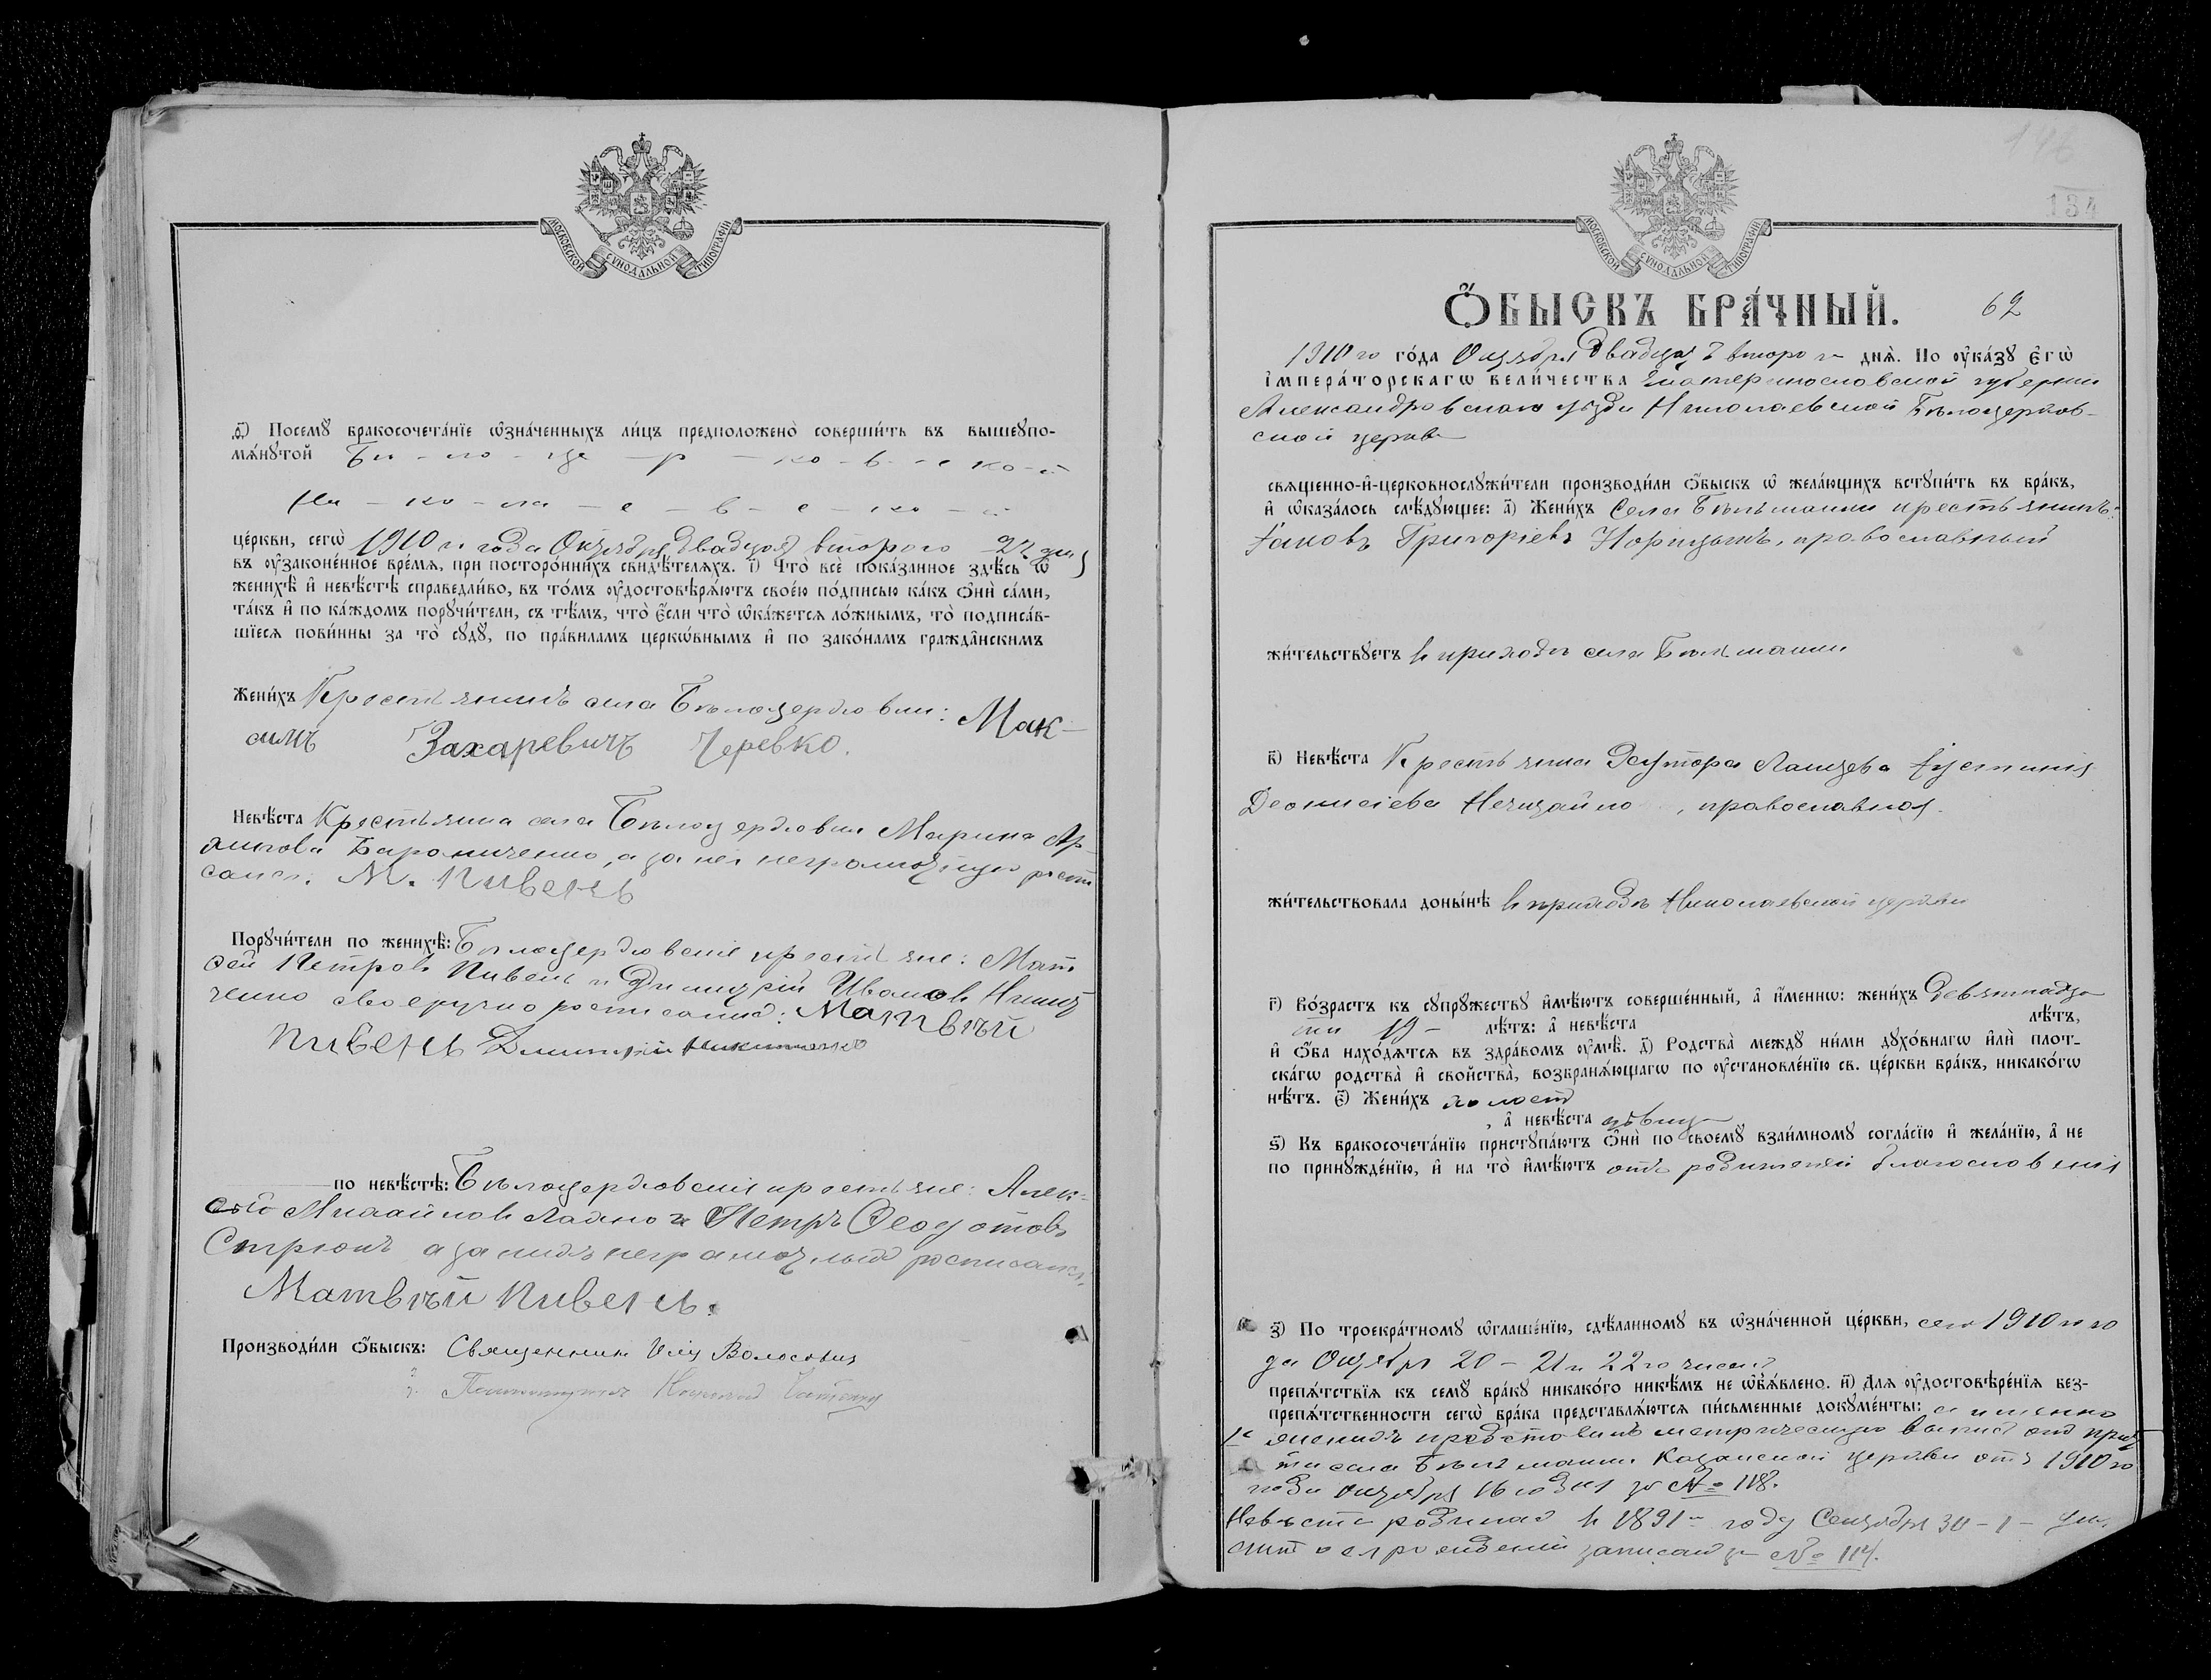 МОСКОВСКОЙ СѴНОДАЛЬНОЙ ТИПОГРАФІИ
Посемꙋ бракосочета́нїе ѡ҆зна́ченныхъ ли́цъ предположено̀ соверши́ть въ вышеꙋпо-
мѧ́нꙋтой Бѣ - ло - це - р - ко - в - с ко - й
Ни - ко - ла - е - в - с - ко - й
це́ркви, сегѡ̀ 1910 го года Октября двадцать второго 22 дня
въ ѹ҆законе́нное вре́мѧ, при посторо́ннихъ свидѣ́телѧхъ. і҃) Что̀ всѐ пока́занное здѣ́сь ѡ҆
женихѣ̀ и҆ невѣ́стѣ справедли́во, въ то́мъ ѹ҆достовѣрѧ́ютъ свое́ю по́дписью ка́къ ѻ҆нѝ са́ми,
та́къ и҆ по ка́ждомъ порꙋчи́тели, съ тѣ́мъ, что̀ є҆́сли что̀ ѡ҆ка́жется ло́жнымъ, то̀ подписа́в-
шїеся пови́нны за то̀ сꙋдꙋ̀, по пра́виламъ церкѡ́внымъ и҆ по зако́намъ гражда̑нскимъ
Жени́хъ Крестьянинъ села Бѣлоцерковки: Мак-
симъ Захаревичъ Черевко.
Невѣ́ста Крестьянка села Бѣлоцерковки Марина
а за нея неграмотную
М. Пивень
Порꙋчи́тели по женихѣ̀: Бѣлоцерковскіе крестьяне: Мат
фей Петровъ Пивень и Димитрій Ивановъ Никит
ченко своеручно росписались: Матвѣй
Пивень Дмитрій Никитченко
по невѣ́стѣ: Бѣлоцерковскіе крестьяне: Алек-
сѣй Михайловъ и Петръ Ѳеодотовъ
а за нихъ неграмотныхъ росписался
Матвѣй Пивень.
Производи́ли ѻ҆́быскъ: Священникъ
134
МОСКОВСКОЙ СѴНОДАЛЬНОЙ ТИПОГРАФІИ
Ѻ҆́БЫСКЪ БРА́ЧНЫЙ. 62
1910 го го́да Октября двадцать второго днѧ̀. По ѹ҆ка́зꙋ є҆гѡ̀
і҆мпера́торскагѡ вели́чества Екатеринославской губерніи
Александровскаго уѣзда Николаевской Бѣлоцерков-
ской церкви
свѧще́нно-и҆-церковнослꙋжи́тели производи́ли ѻ҆́быскъ ѡ҆ жела́ющихъ встꙋпи́ть въ бра́къ,
и҆ ѡ҆каза́лось слѣ́дꙋющее: а҃) Жени́хъ Села Бѣльманки крестьянинъ:
Іаковъ Григоріевъ православный
жи́тельствꙋетъ въ приходѣ села Бѣльманки
в҃) Невѣ́ста Крестьянка хутора Іустинія
Деонисіева Нечитайло, православная.
жи́тельствовала доны́нѣ въ приходѣ Николаевской церкви
г҃) Во́зрастъ къ сꙋпрꙋжествꙋ и҆мѣ́ютъ соверше́нный, а҆ и҆́меннѡ: жени́хъ девятнадца
ти 19 - лѣ́тъ: а҆ невѣ́ста лѣ́тъ,
и҆ ѻ҆́ба нахо́дѧтся въ здра́вомъ ѹ҆мѣ̀. д҃) Родства̀ междꙋ ни́ми дꙋхо́внагѡ и҆лѝ плот-
ска́гѡ родства̀ и҆ сво́йства̀, возбранѧ́ющагѡ по ѹ҆становле́нїю св. це́ркви бра́къ, никако́гѡ
нѣ́тъ. є҃) Жени́хъ холостъ
, а҆ невѣ́ста дѣвица
ѕ҃) Къ бракосочета́нїю пристꙋпа́ютъ ѻ҆нѝ по своемꙋ̀ взаи́мномꙋ согла́сїю и҆ жела́нїю, а҆ не
по принꙋжде́нїю, и҆ на то̀ и҆мѣ́ютъ отъ родителей благословенія
з҃) По троекра́тномꙋ ѡ҆глаше́нїю, сдѣ́ланномꙋ въ ѡ҆зна́ченной це́ркви, сего 1910 го го
да Октября 20 - 21 и 22 го чиселъ
препѧ́тствїѧ къ семꙋ̀ бра́кꙋ никако́го никѣ́мъ не ѡ҆б̾ѧ́влено. и҃) Длѧ ѹ҆достовѣре́нїѧ без-
препѧ́тственности сегѡ̀ бра́ка представлѧ́ются пи́сьменные докꙋме́нты: а именно
женихъ представилъ метрическую выпись отъ прич
та села Бѣльманки Казанской церкви отъ 1910 го
года октября 16 го дня за № 118.
Невѣста родилась въ 1891 - году Сентября 30 - го -
записана за № 114.